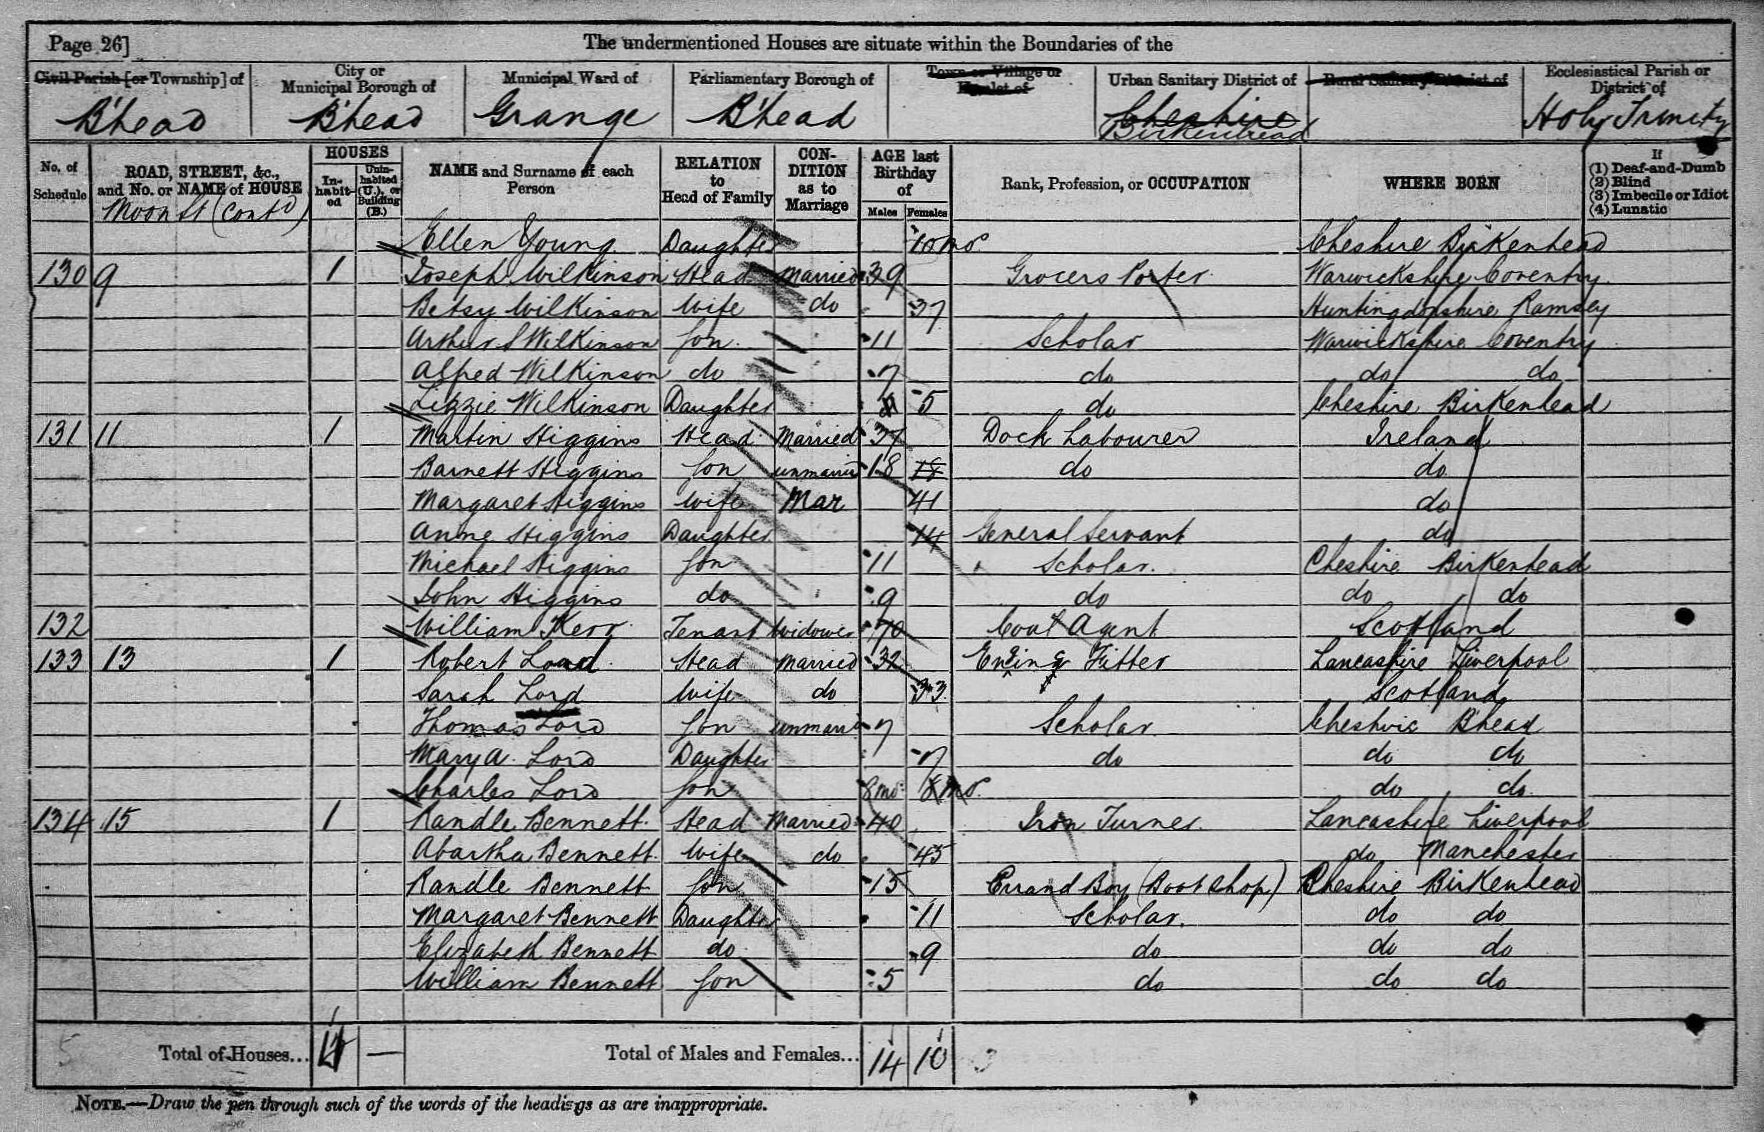 Page 26]
The undermentioned Houses are situate within the Boundaries of the
Civil Parish [or Township] of
City or Municipal Borough of
Municipal Ward of
Parliamentary Borough of
Town or Village or Hamlet of
Urban Sanitary District of
Rural Sanitary District of
Ecclesiastical Parish or District of
B'head B'head Grange B'head Cheshire Birkenhead Holy Trinity
No. of Schedule
ROAD, STREET, &c., and No. or NAME of HOUSE
HOUSES
In-habit-ed
Unin-habited (U.), or Building (B.)
NAME and Surname of each Person
RELATION to Head of Family
CON-DITION as to Marriage
AGE last Birthday of
Males Females
Rank, Profession, or OCCUPATION
WHERE BORN
If
(1) Deaf-and-Dumb
(2) Blind
(3) Imbecile or Idiot
(4) Lunatic
Moon St (contd)
Ellen Young Daughter 10 mos Cheshire Birkenhead
130 9 1 Joseph Wilkinson Head Married 39 Grocers Porter Warwickshire Coventry
Betsy Wilkinson Wife do 37 Huntingdonshire Ramsey
Arthur S Wilkinson Son 11 Scholar Warwickshire Coventry
Alfred Wilkinson do 7 do do do
Lizzie Wilkinson Daughter 5 do Cheshire Birkenhead
131 11 1 Martin Higgins Head Married 37 Dock Labourer Ireland
Barnett Higgins Son unmarried 18 18 do do
Margaret Higgins Wife Mar 41 do
Anne Higgins Daughter 14 General Servant do
Michael Higgins Son 11 Scholar Cheshire Birkenhead
John Higgins do 9 do do do
132 William Kerr Tenant Widower 70 Coal Agent Scotland
133 13 1 Robert Lord Head Married 32 Engine Fitter Lancashire Liverpool
Sarah Lord Wife do 33 Scotland
Thomas Lord Son unmarr 7 Scholar Cheshire Bhead
Mary A Lord Daughter 7 do do do
Charles Lord Son 8 mo 8 mo do do
134 15 1 Randle Bennett Head Married 40 Iron Turner Lancashire Liverpool
Abartha Bennett Wife do 45 do Manchester
Randle Bennett Son 15 Errand Boy (Boot Shop) Cheshire Birkenhead
Margaret Bennett Daughter 11 Scholar do do
Elizabeth Bennett do 9 do do do
William Bennett Son 5 do do do
Total of Houses... — Total of Males and Females... 14 10
NOTE.—Draw the pen through such of the words of the headings as are inappropriate.